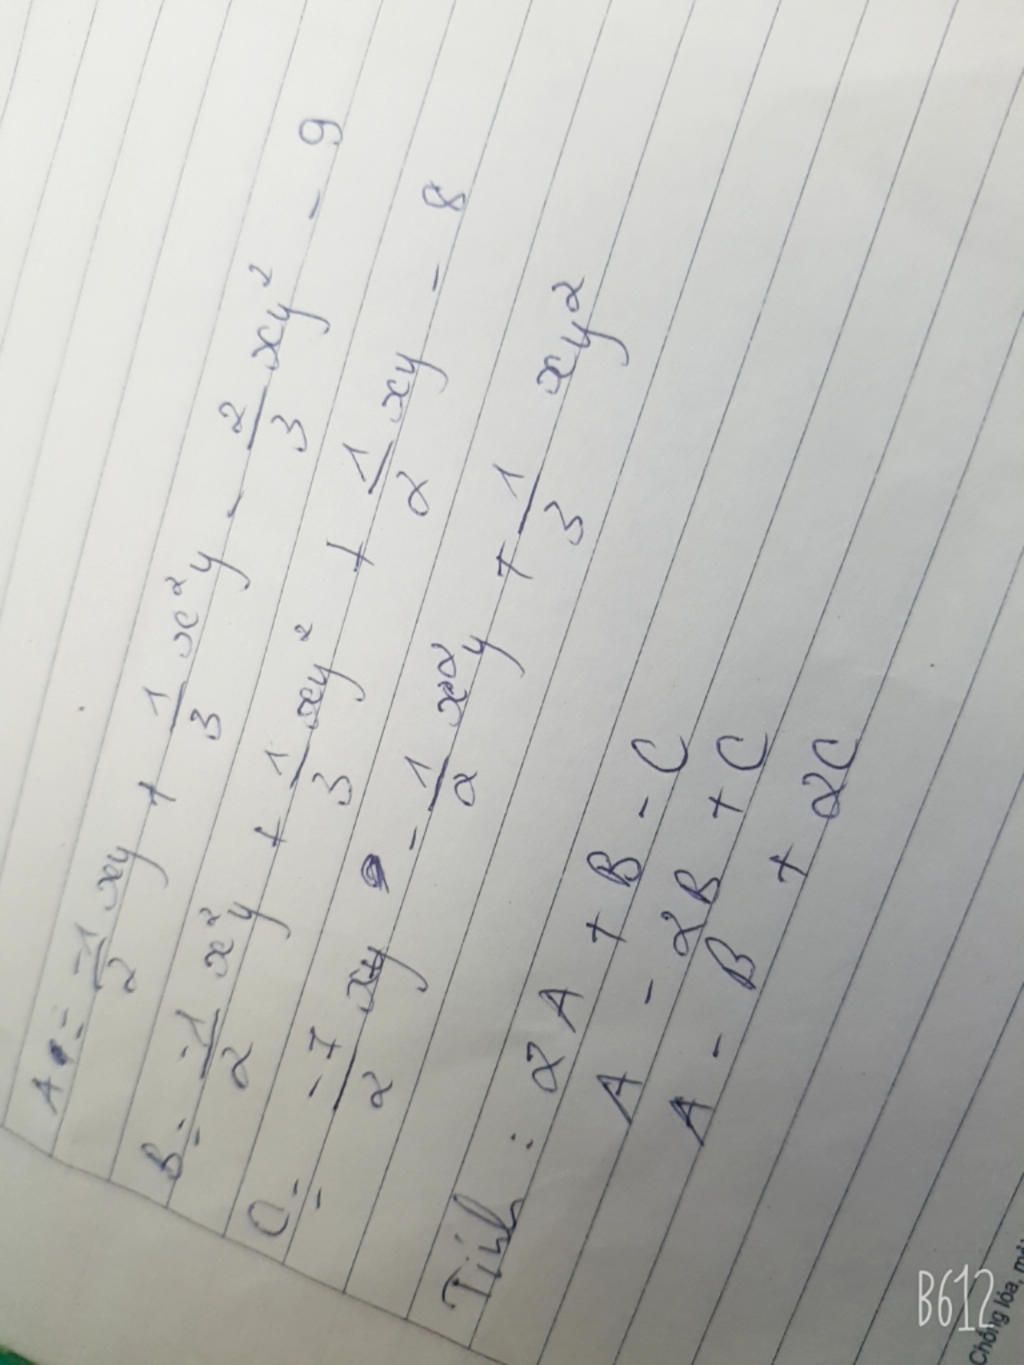 A = -1/2 xy + 1/3 x²y - 2/3 xy² - 9
B = -1/2 x²y + 1/3 xy² + 1/2 xy - 8
C = -7/2 xy - 1/2 x²y + 1/3 xy²
Tính : 2A + B - C
A - 2B + C
A - B + 2C
Chống lóa,
B612